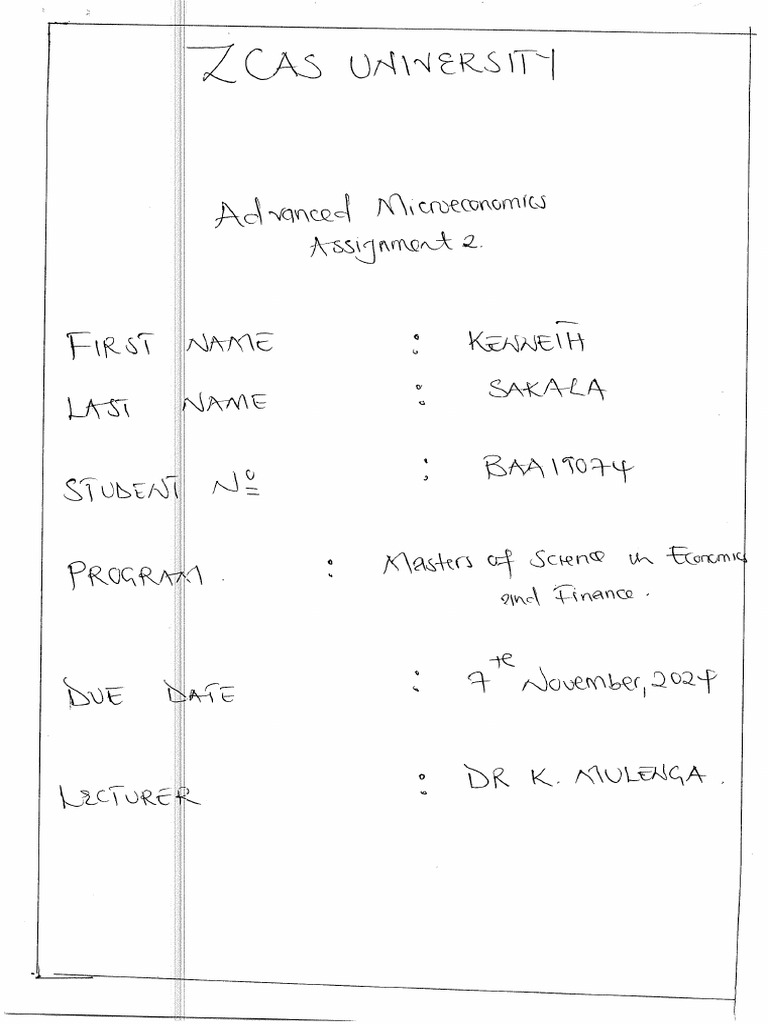 ZCAS UNIVERSITY
Advanced Microeconomics
Assignment 2.
FIRST NAME : KENNETH
LAST NAME : SAKALA
STUDENT No : BAA19074
PROGRAM. : Masters of Science in Economics
and Finance.
DUE DATE : 7te November, 2024
LECTURER : DR K. MULENGA.